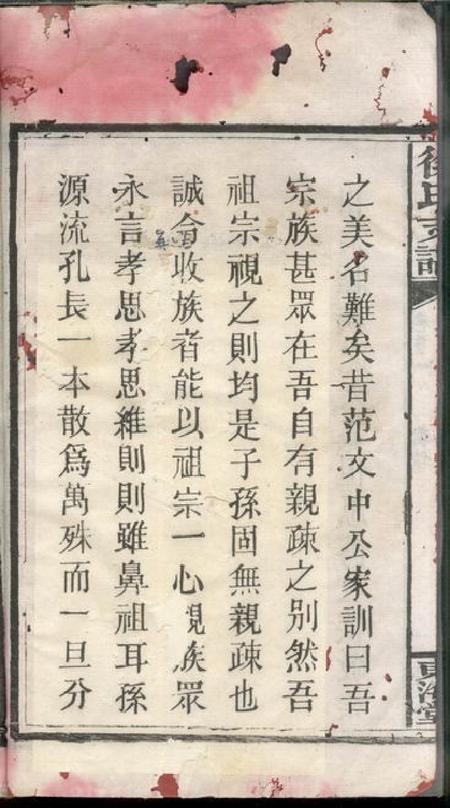 之美名難矣昔范文中公家訓曰吾
宗族甚眾在吾自有親疎之别然吾
祖宗視之則均是子孫固無親疎也
誠令收族者能以祖宗一心視族眾
永言孝思孝思維則則雖鼻祖耳孫
源流孔長一本散爲萬殊而一旦分
徐氏支譜
東海堂